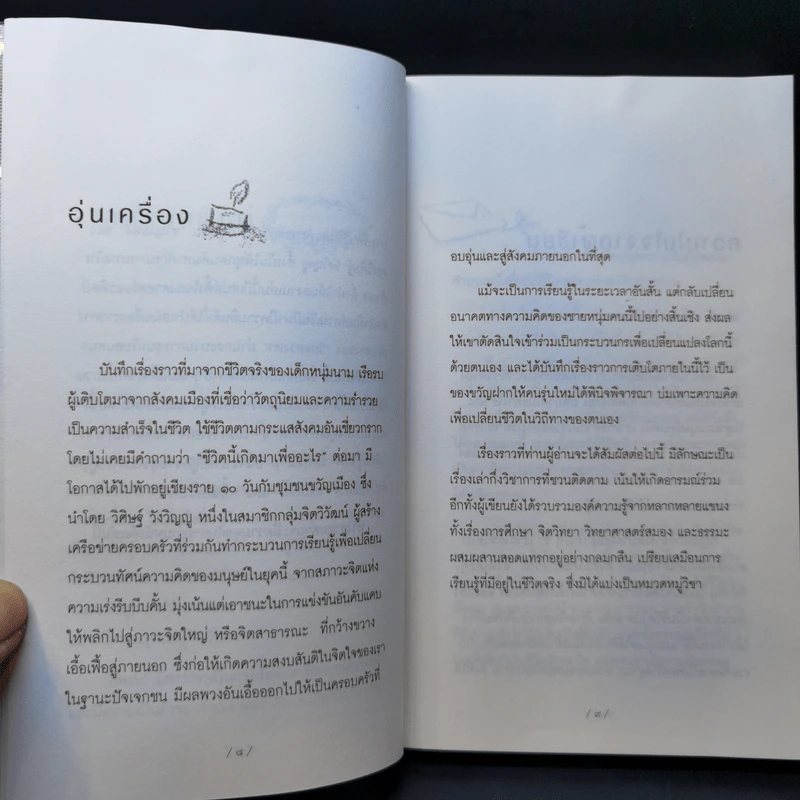 อุ่นเครื่อง
บันทึกเรื่องราวที่มาจากชีวิตจริงของเด็กหนุ่มนาม เรือรบ
ผู้เติบโตมาจากสังคมเมืองที่เชื่อว่าวัตถุนิยมและความร่ำรวย
เป็นความสำเร็จในชีวิต ใช้ชีวิตตามกระแสสังคมอันเชี่ยวกราก
โดยไม่เคยมีคำถามว่า "ชีวิตนี้เกิดมาเพื่ออะไร" ต่อมา มี
โอกาสได้ไปพักอยู่เชียงราย ๑๐ วันกับชุมชนขวัญเมือง ซึ่ง
นำโดย วิศิษฐ์ วังวิญญู หนึ่งในสมาชิกกลุ่มจิตวิวัฒน์ ผู้สร้าง
เครือข่ายครอบครัวที่ร่วมกันทำกระบวนการเรียนรู้เพื่อเปลี่ยน
กระบวนทัศน์ความคิดของมนุษย์ในยุคนี้ จากสภาวะจิตแห่ง
ความเร่งรีบบีบคั้น มุ่งเน้นแต่เอาชนะในการแข่งขันอันคับแคบ
ให้พลิกไปสู่ภาวะจิตใหญ่ หรือจิตสาธารณะ ที่กว้างขวาง
เอื้อเฟื้อสู่ภายนอก ซึ่งก่อให้เกิดความสงบสันติในจิตใจของเรา
ในฐานะปัจเจกชน มีผลพวงอันเอื้อออกไปให้เป็นครอบครัวที่
/ ๘ /
อบอุ่นและสู่สังคมภายนอกในที่สุด
แม้จะเป็นการเรียนรู้ในระยะเวลาอันสั้น แต่กลับเปลี่ยน
อนาคตทางความคิดของชายหนุ่มคนนี้ไปอย่างสิ้นเชิง ส่งผล
ให้เขาตัดสินใจเข้าร่วมเป็นกระบวนกรเพื่อเปลี่ยนแปลงโลกนี้
ด้วยตนเอง และได้บันทึกเรื่องราวการเติบโตภายในนี้ไว้ เป็น
ของขวัญฝากให้คนรุ่นใหม่ได้พินิจพิจารณา บ่มเพาะความคิด
เพื่อเปลี่ยนชีวิตในวิถีทางของตนเอง
เรื่องราวที่ท่านผู้อ่านจะได้สัมผัสต่อไปนี้ มีลักษณะเป็น
เรื่องเล่ากึ่งวิชาการที่ชวนติดตาม เน้นให้เกิดอารมณ์ร่วม
อีกทั้งผู้เขียนยังได้รวบรวมองค์ความรู้จากหลากหลายแขนง
ทั้งเรื่องการศึกษา จิตวิทยา วิทยาศาสตร์สมอง และธรรมะ
ผสมผสานสอดแทรกอยู่อย่างกลมกลืน เปรียบเสมือนการ
เรียนรู้ที่มีอยู่ในชีวิตจริง ซึ่งมิได้แบ่งเป็นหมวดหมู่วิชา
/ ๙ /